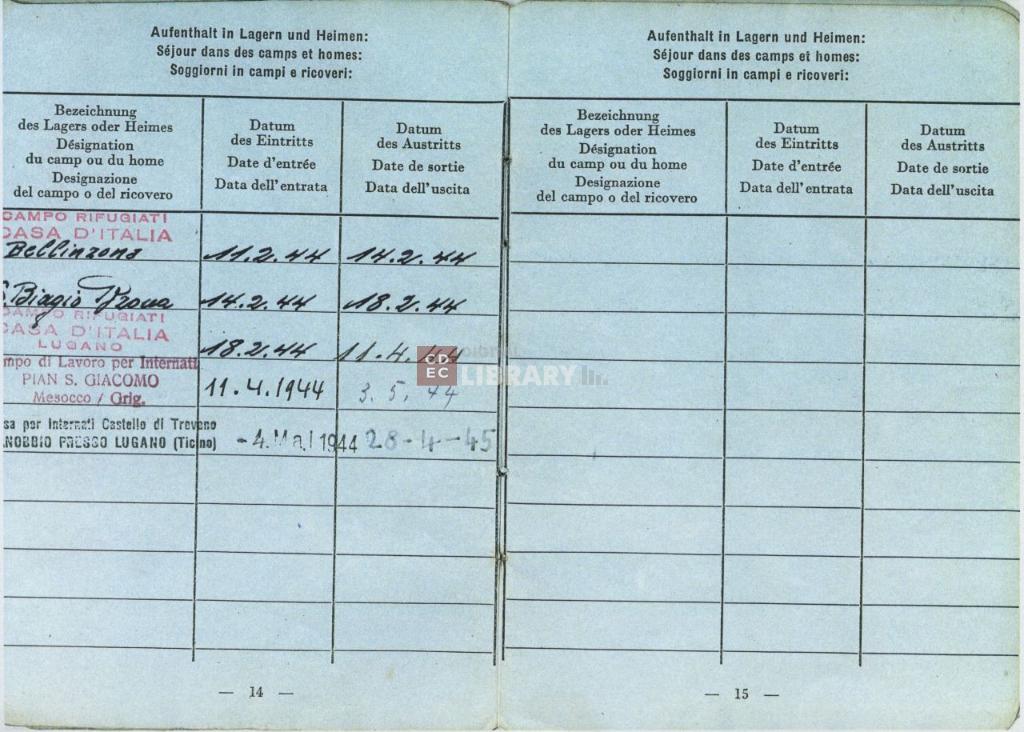 Aufenthalt in Lagern und Heimen:
Séjour dans des camps et homes:
Soggiorni in campi e ricoveri:
Bezeichnung
des Lagers oder Heimes
Désignation
du camp ou du home
Designazione
del campo o del ricovero
Datum
des Eintritts
Date d'entrée
Data dell'entrata
Datum
des Austritts
Date de sortie
Data dell'uscita
CAMPO RIFUGIATI
CASA D'ITALIA
Bellinzona 11.2.44 14.2.44
S. Biagio 14.2.44 18.2.44
CAMPO RIFUGIATI
CASA D'ITALIA
LUGANO 18.2.44 11.4.44
mpo di Lavoro per Internati
PIAN S. GIACOMO 11.4.1944 3.5.44
Mesocco / Grig.
sa per Internati Castello di Trevano
ANOBBIO PRESSO LUGANO (Ticino) -4. Mai 1944 28-4-45
CDEC LIBRARY
— 14 —
Aufenthalt in Lagern und Heimen:
Séjour dans des camps et homes:
Soggiorni in campi e ricoveri:
Bezeichnung
des Lagers oder Heimes
Désignation
du camp ou du home
Designazione
del campo o del ricovero
Datum
des Eintritts
Date d'entrée
Data dell'entrata
Datum
des Austritts
Date de sortie
Data dell'uscita
— 15 —